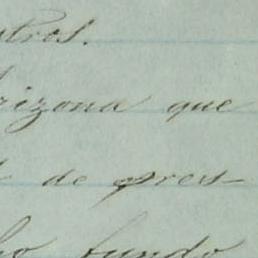 stros.
rizona que
de pres-
ho fundo